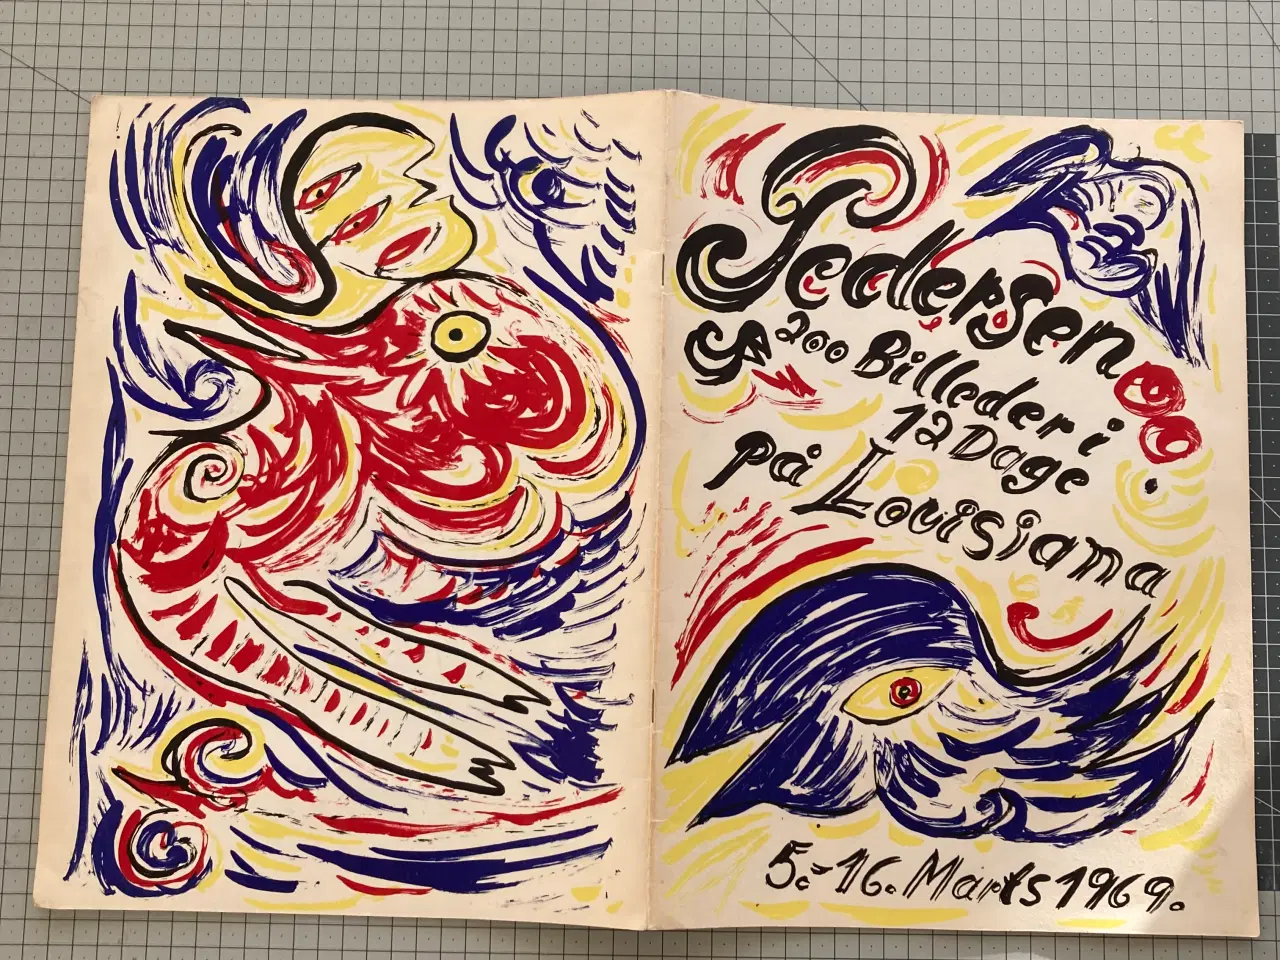 Pedersen
200 Billeder i
12 Dage
på Louisiana
5.-16. Marts 1969.